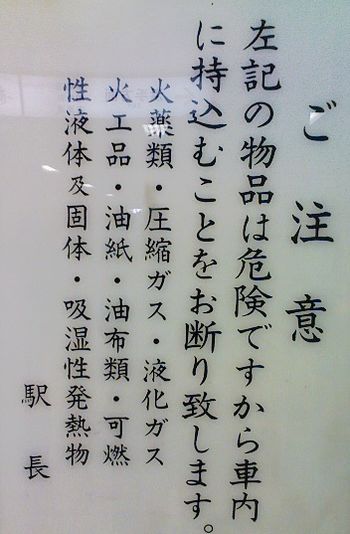 ご注意
左記の物品は危険ですから車内
に持込むことをお断り致します。
火薬類・圧縮ガス・液化ガス
火工品・油紙・油布類・可燃
性液体及固体・吸湿性発熱物
駅長